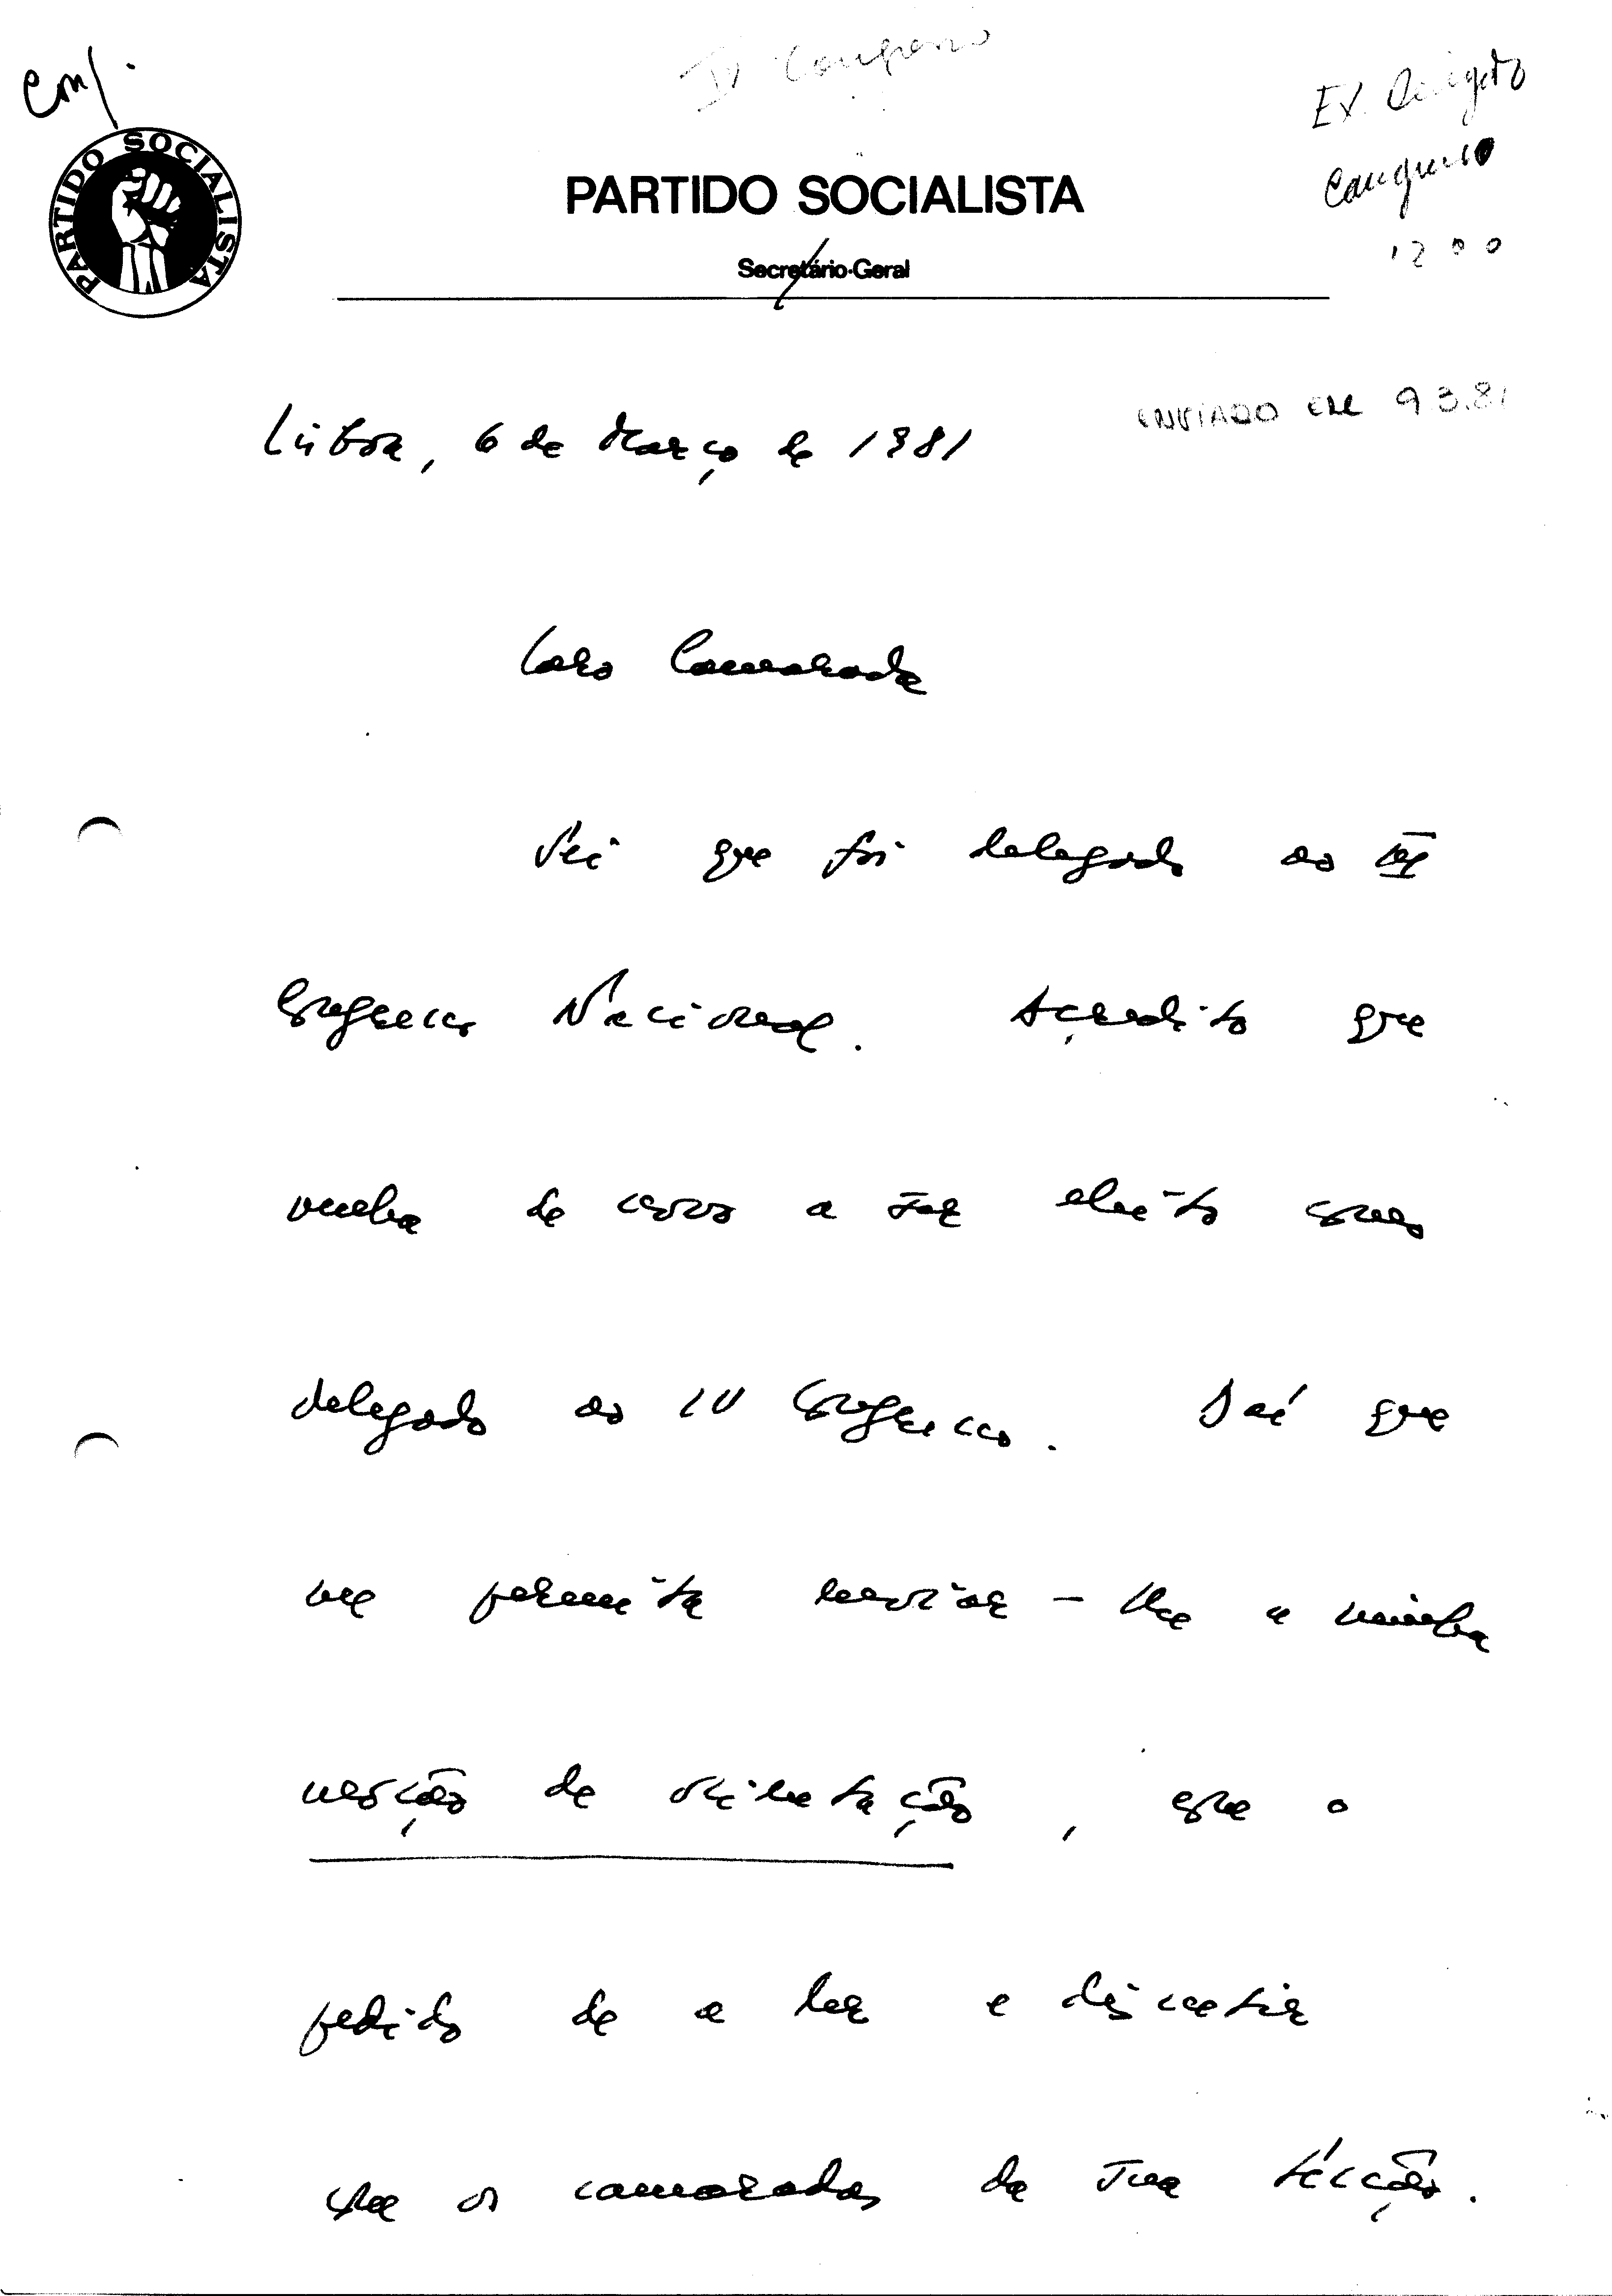 Con/.
IV Congresso
Ex. Delegado
Congresso
1200
PARTIDO SOCIALISTA
PARTIDO SOCIALISTA
Secretário-Geral
ENVIADO EM 9 3.81
Lisboa, 6 de Março de 1981
Caro Camarada
Sei que foi delegado ao III
Congresso Nacional. Acredito que
venha de novo a ser eleito como
delegado ao IV Congresso. Daí que
me permita enviar-lhe a minha
moção de orientação, com o
pedido de a ler e discutir
com os camaradas da sua secção.